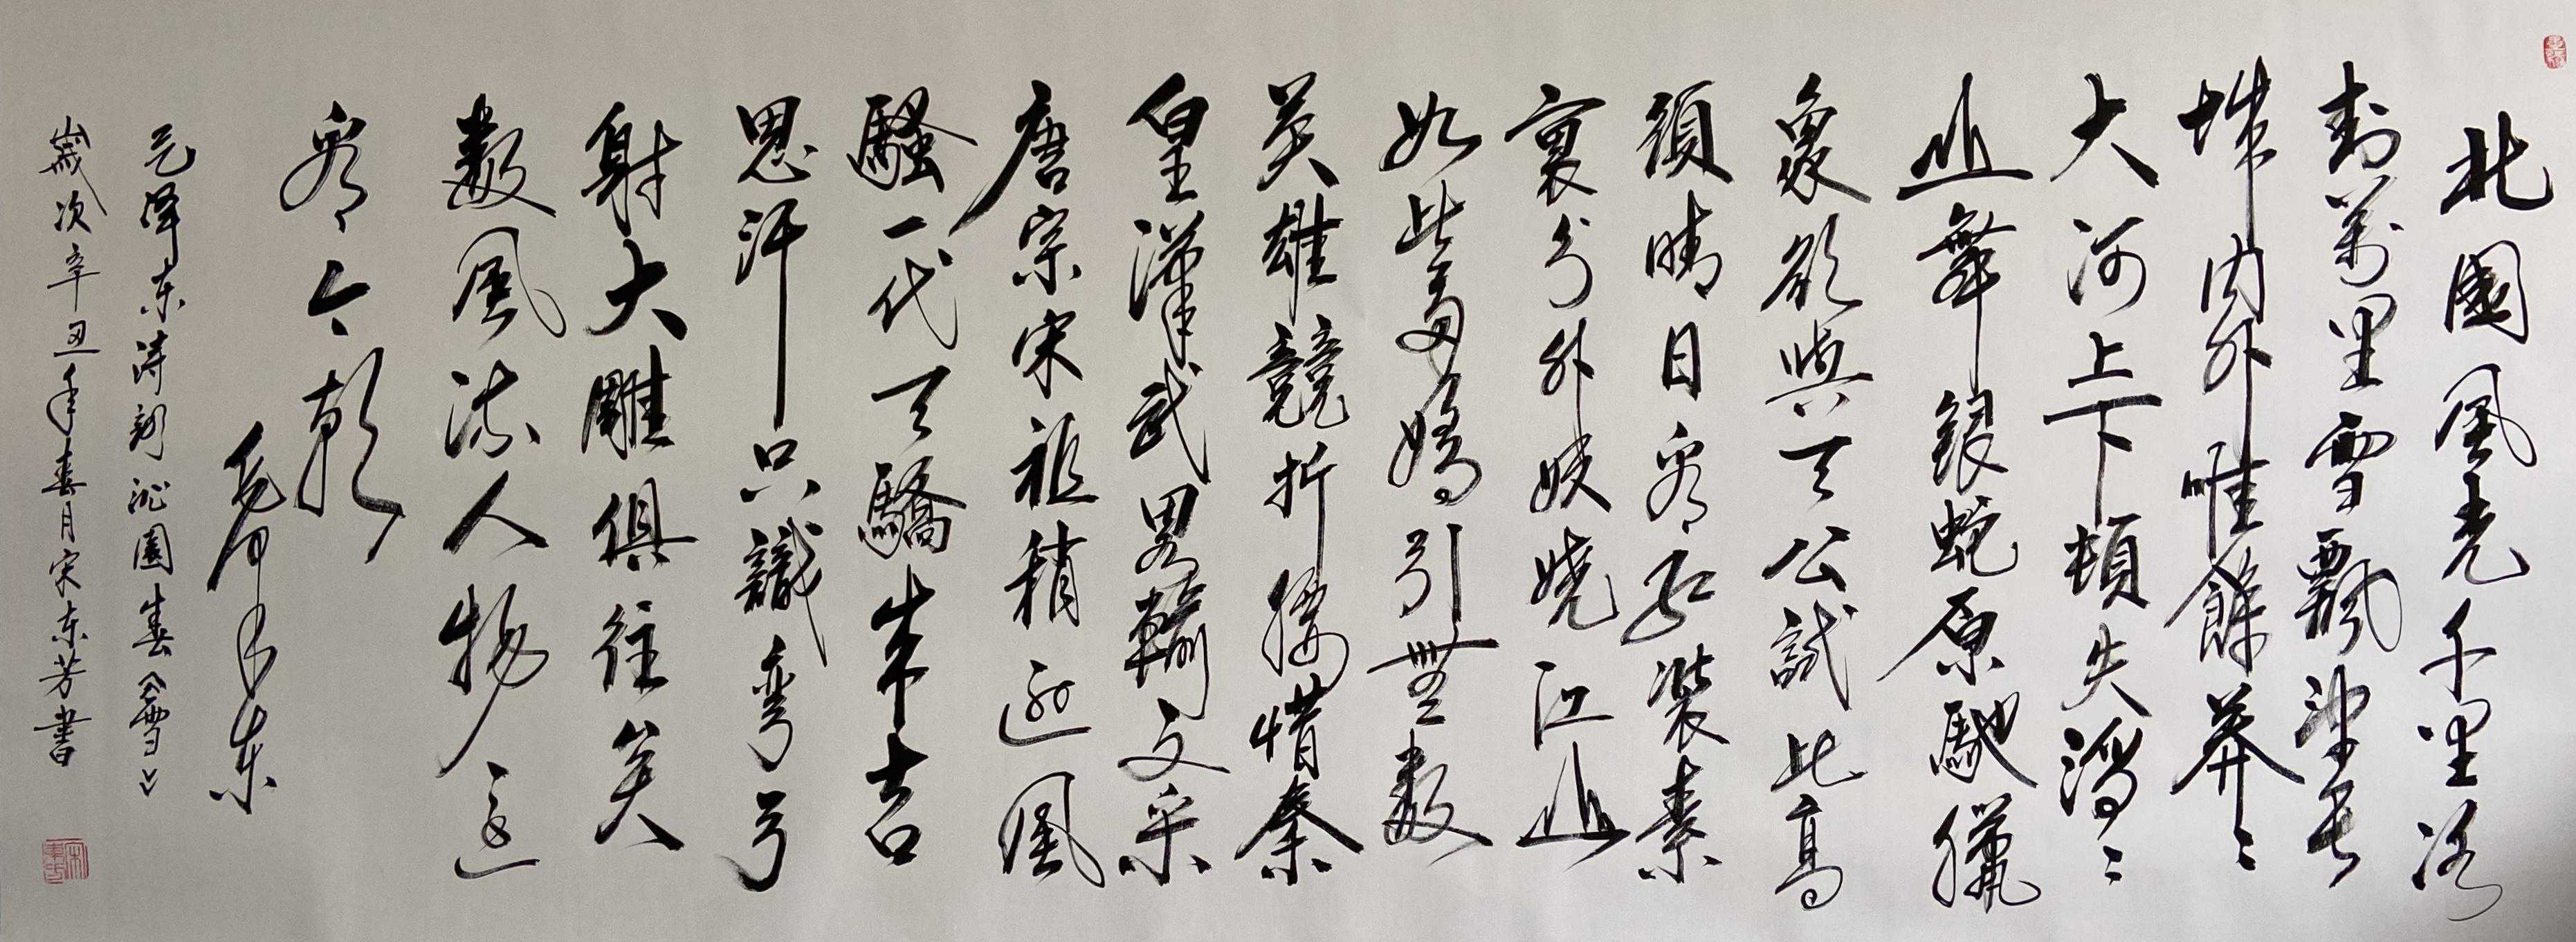 北國風光千里冰
封萬里雪飄望長
城内外惟餘莽〻
大河上下頓失滔〻
山舞銀蛇原馳臘
象欲與天公試比高
須晴日看紅裝素
裹分外妖嬈江山
如此多嬌引無數
英雄競折腰惜秦
皇漢武畧輸文采
唐宗宋祖稍遜風
騷一代天驕成吉
思汗只識彎弓
射大雕俱往矣
數風流人物還
看今朝
毛澤东
毛澤东诗詞沁園春《雪》
歲次辛丑年春月宋东芳書